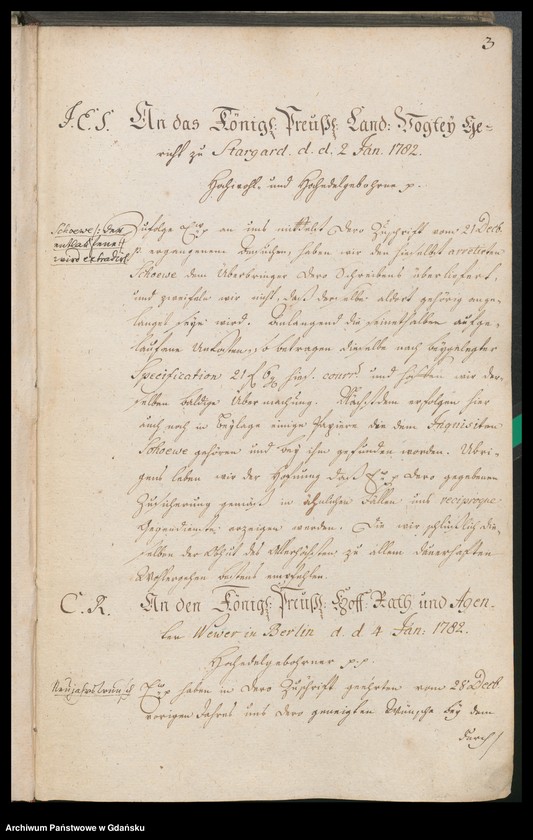 3
J. E. S. An das Königl: Preußl: Land: Vogtey Ge-
richt zu Stargard. d. d. 2 Jan. 1782.
Hochwohl- und Hochedelgebohrne p.
Schoewe
wird extradirt
Zufolge an uns mittelst Dero Zuschrift vom 21 Decb.
p. ergangenen Ansuchen, haben wir den hieselbst arretirten
Schoewe dem Überbringer Dero Schreibens überliefert,
und zweifeln wir nicht, daß derselbe aldort gehörig ange-
langet seyn wird. Anlangend die seinethalben aufge-
laufene Unkosten, so betragen dieselbe nach beygelegter
Specification 21 f 6 g hies. courr. und hoffen wir der-
selben baldige Übermachung. Nächstdem erfolgen hier
auch noch in Beylage einige Papiere die dem Inquisiten
Schoewe gehören und bey ihm gefunden worden. Übri-
gens leben wir der Hofnung daß Ew. p Dero gegebenen
Zusicherung gemäß in ähnlichen Fällen uns reciproque
Gegendienste erzeigen werden. Die wir schließlich die-
selben der Obhut des Allerhöchsten zu allem dauerhaften
Wohlergehen bestens empfehlen.
C. R. An den Königl: Preußl: Hoff-Rath und Agen-
ten Wewer in Berlin d. d. 4 Jan: 1782.
Hochedelgebohrner p. p.
Neujahrswunsch
Ew. p haben in Dero Zuschrift geehrten vom 28 Decb.
vorigen Jahres uns Dero geneigten Wünsche bey dem
durch
Archiwum Państwowe w Gdańsku